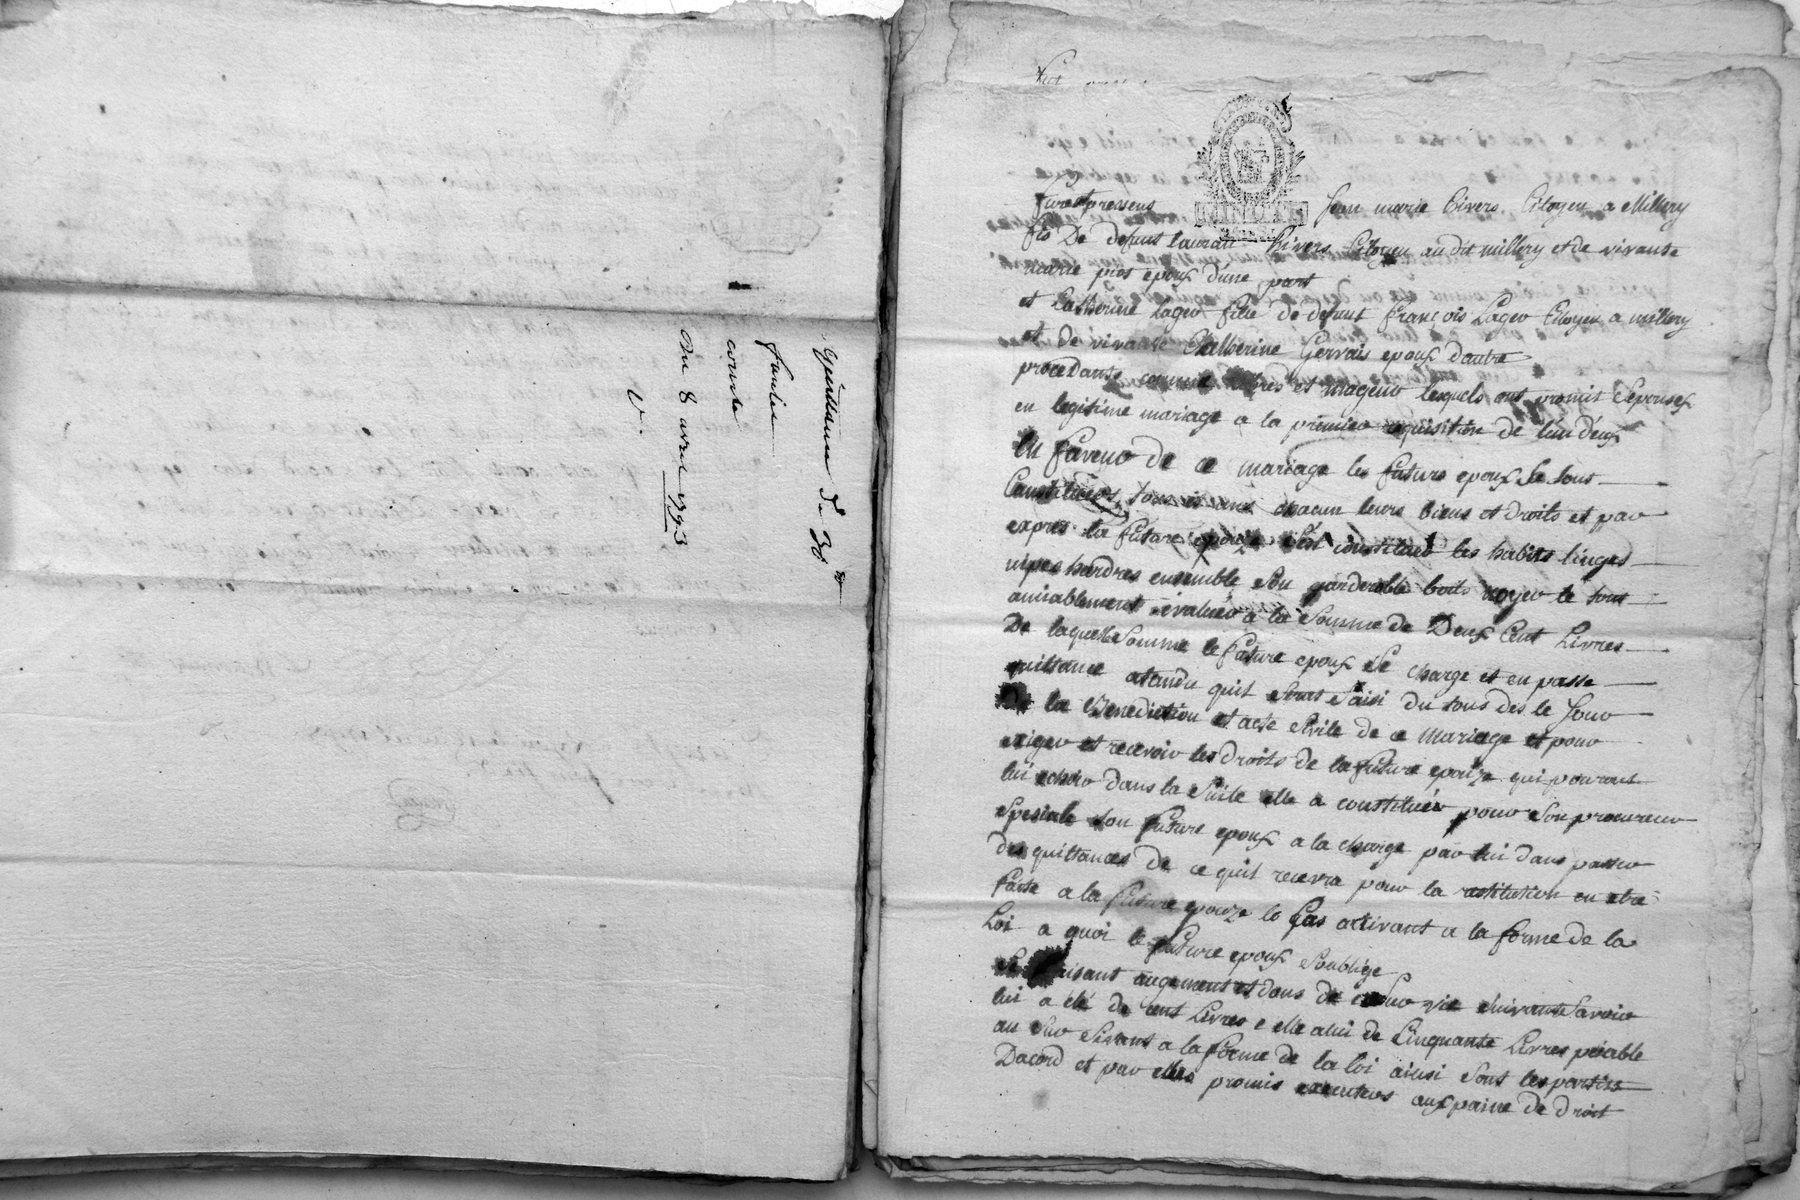 du 8 avril 1793
V.
furet pressens Jean marie Bivers Citoyen a Millery
fis De defunt Bivers Citoyen au dit millery et de vivante
marie pros epoux d'une part
et Catherine Lager fille de defunt françois Lager Citoyen a millery
et de vivante Catherine Gervais epoux dautre
procedants comme et mageur lesquels ont promit Seponser
en legitime mariage a la premier requisition de lun deux
En faveur de ce mariage les futurs epoux se sont
Constitues tous chacun leurs biens et droits et par
expres la future epouze sest constitues les habits linges
nipes hardres ensemble son garderoble boits noyer le tout
amiablement evaluer a la Somme de Deux Cent Livres
De laquelle Somme le future epoux se charge et en passe
quittance atandu quil Seras Saisi du tous des le Jour
De la Benediction et acte Civile de ce mariage et pour
exiger et recevoir les droits de la future epouze qui pouront
lui echoir dans la Suite elle a constituér pour Son procureur
Spesiale Son future epoux a la charge par lui dans passer
des quittances de ce quil recevra pour la restitution en etre
faite a la future epouze le Cas arrivant a la forme de la
Loi a quoi le future epoux Soublige
Se faisant augement et dons de Survie Suivants Savoir
lui a éle de cent Livres e elle a lui de Cinquante Livres peiable
au Sur Sivant a la forme de la loi ainsi Sont les parties
Dacord et par elles promis executers aux paine de droit